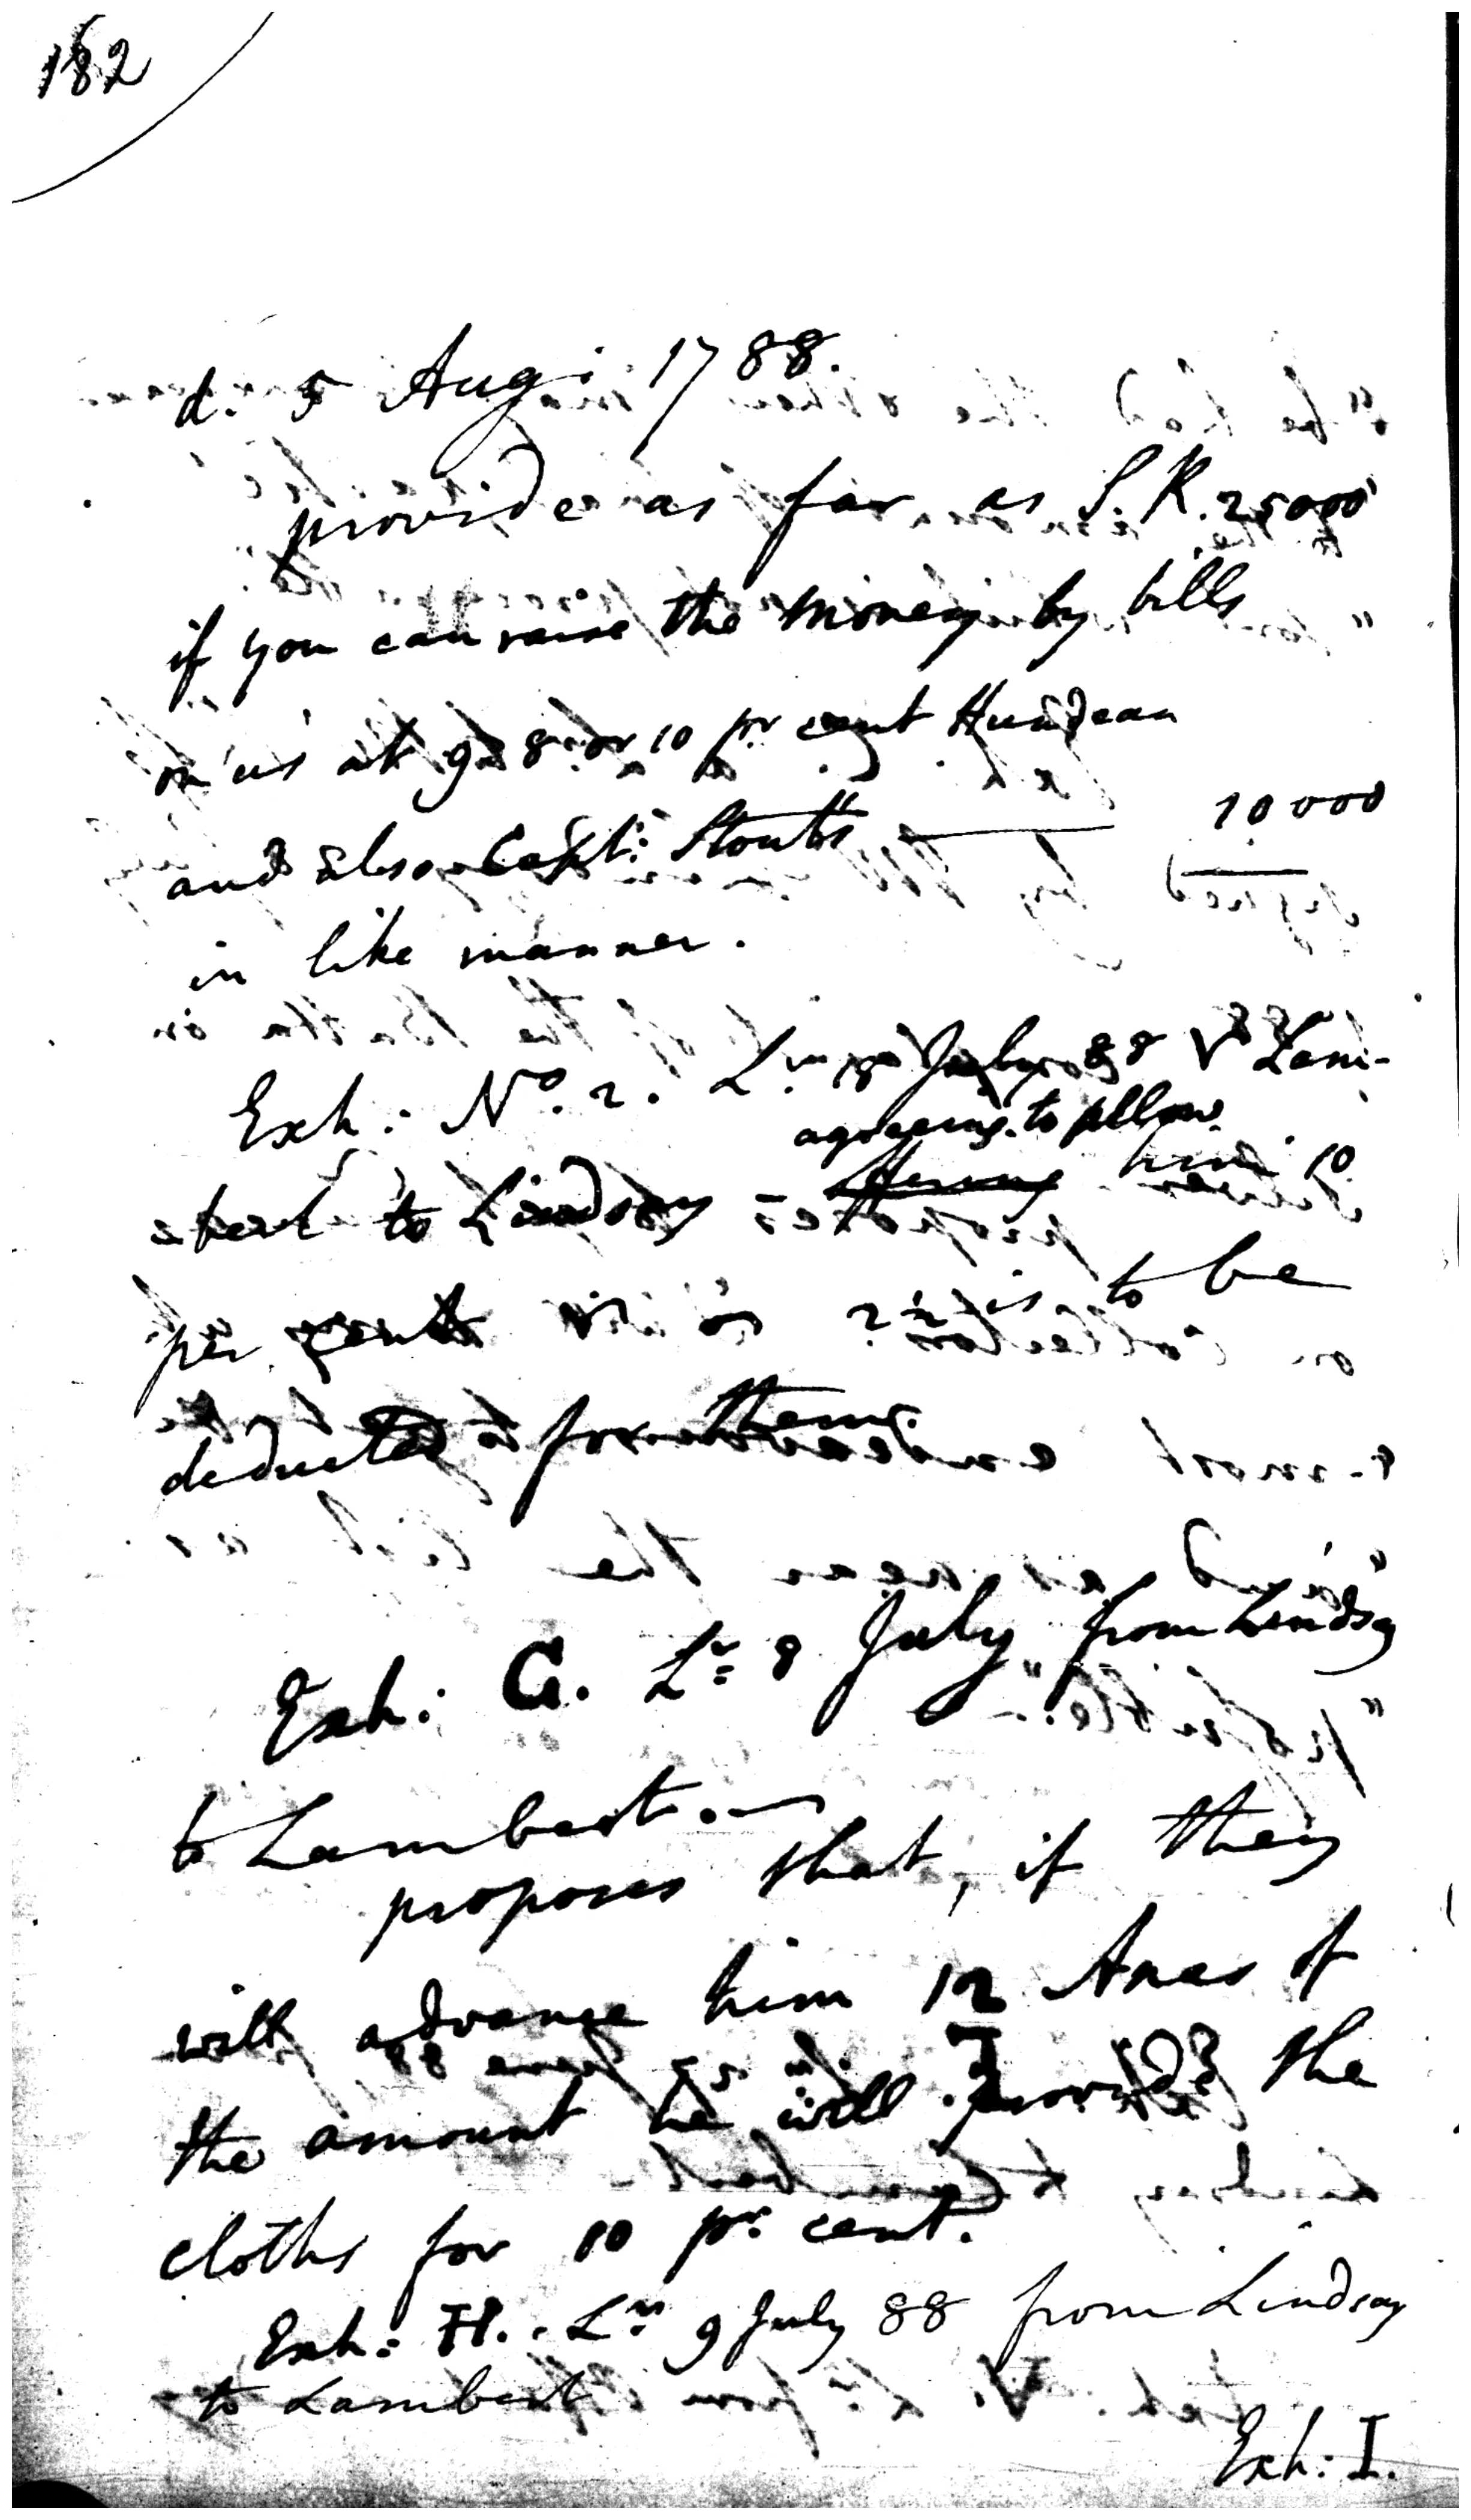 182
d. 5 Aug: 1788.
provide as far as S.R. 25000
if you can raise the money by bills
on us at 9 8 or 10 pr cent Hundean
and also Capt: Stouts — 10000
in like manner.
Exh: No. 2. Lr. 18 July 88 Lam-
agreeing to allow
-bert to Lindsay - him 10
per cent 2½ is to be
deducted for them.
Exh: G. Lr: 8 July from Lindsay
to Lambert. —
proposes that, if they
will advance him 12 Anas of
the amount he will provide the
cloths for 10 pr. cent.
Exh: H. Lr. 9 July 88 from Lindsay
to Lambert
Exh: I.